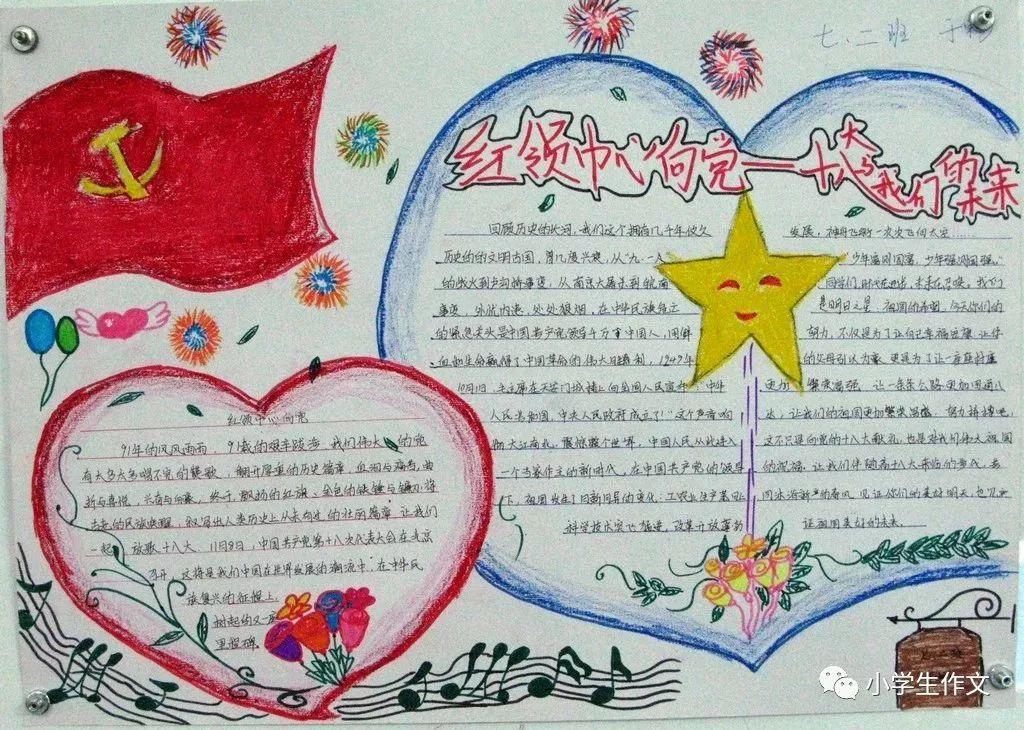 七.二班
红领巾心向党——十八大与我们的未来
回顾历史的长河,我们这个拥有几千年悠久
历史的文明古国,曾几度兴衰,从“九·一八”
的战火到卢沟桥事变,从南京大屠杀到皖南
事变,外忧内患,处处狼烟,在中华民族危亡
的紧急关头是中国共产党领导千万个中国人,用鲜
血和生命赢得了中国革命的伟大胜利,1949年
10月1日,毛主席在天安门城楼上向全国人民宣布:“中华
人民共和国,中央人民政府成立了!”这个声音响
彻大江南北,震惊整个世界,中国人民从此进入
一个当家作主的新时代,在中国共产党的领导
下,祖国发生了日新月异的变化:工农业生产
科学技术突飞猛进,改革开放蓬勃
发展,神舟飞船一次次飞向太空……
“少年强则国富,少年强则国强。”
同学们,时代在进步,未来在召唤,我们
是明日之星,祖国的希望,今天你们的
努力,不仅是为了让自己幸福温暖,让你
的父母引以为豪,更是为了让一座座村庄
更加繁荣富强,让一条条公路更加四通八
达,让我们的祖国更加繁荣昌盛,努力拼搏吧,
这不只是向党的十八大献礼,也是对我们伟大祖国
的祝福,让我们伴随着十八大来临的步伐,去
沐浴新的春风,见证你们的美好明天,也见
证祖国美好的未来。
红领巾心向党
91年的风风雨雨 91载的艰辛跋涉,我们伟大的党
有太多太多唱不完的赞歌,翻开厚重的历史篇章,血泪与痛苦,曲
折与喜悦,兴奋与自豪,终于,飘扬的红旗、金色的铁锤与镰刀,将
古老的民族唤醒,叙写出人类历史上从未有过的壮丽篇章,让我们
一起放歌十八大,11月8日,中国共产党第十八次代表大会在北京
召开,这将是我们中国在世界发展的潮流中,在中华民
族复兴的征程上,
树起的又一座
里程碑。
小学生作文